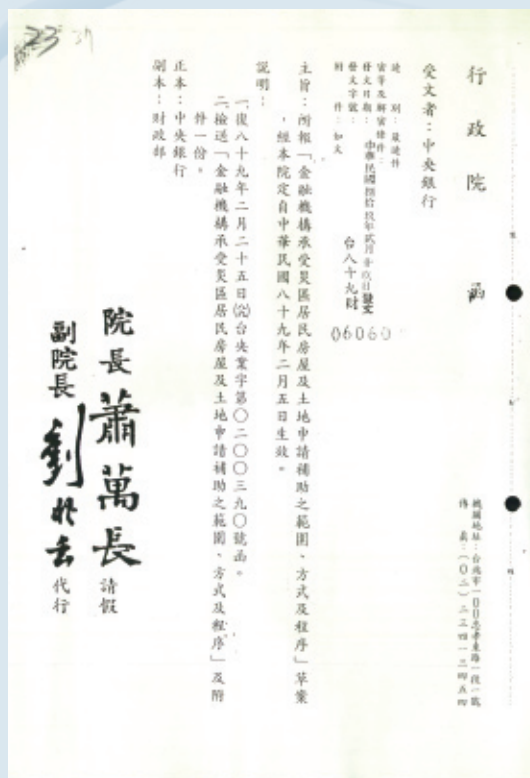 23 37
行政院 函
機關地址：台北市一00忠孝東路一段一號
傳 真：(0二)二三四一三四五四
受文者：中央銀行
速 別：最速件
密等及解密條件：
發文日期：中華民國捌拾玖年貳月 日發文
發文字號：台八十九財
06060
附 件：如文
主旨：所報「金融機構承受災區居民房屋及土地申請補助之範圍、方式及程序」草案
，經本院定自中華民國八十九年二月五日生效。
說明：
一、復八十九年二月二十五日(八九)台央業字第〇二〇〇三九〇號函。
二、檢送「金融機構承受災區居民房屋及土地申請補助之範圍、方式及程序」及附
件一份。
正本：中央銀行
副本：財政部
院長 蕭萬長 請假
副院長 劉兆玄 代行